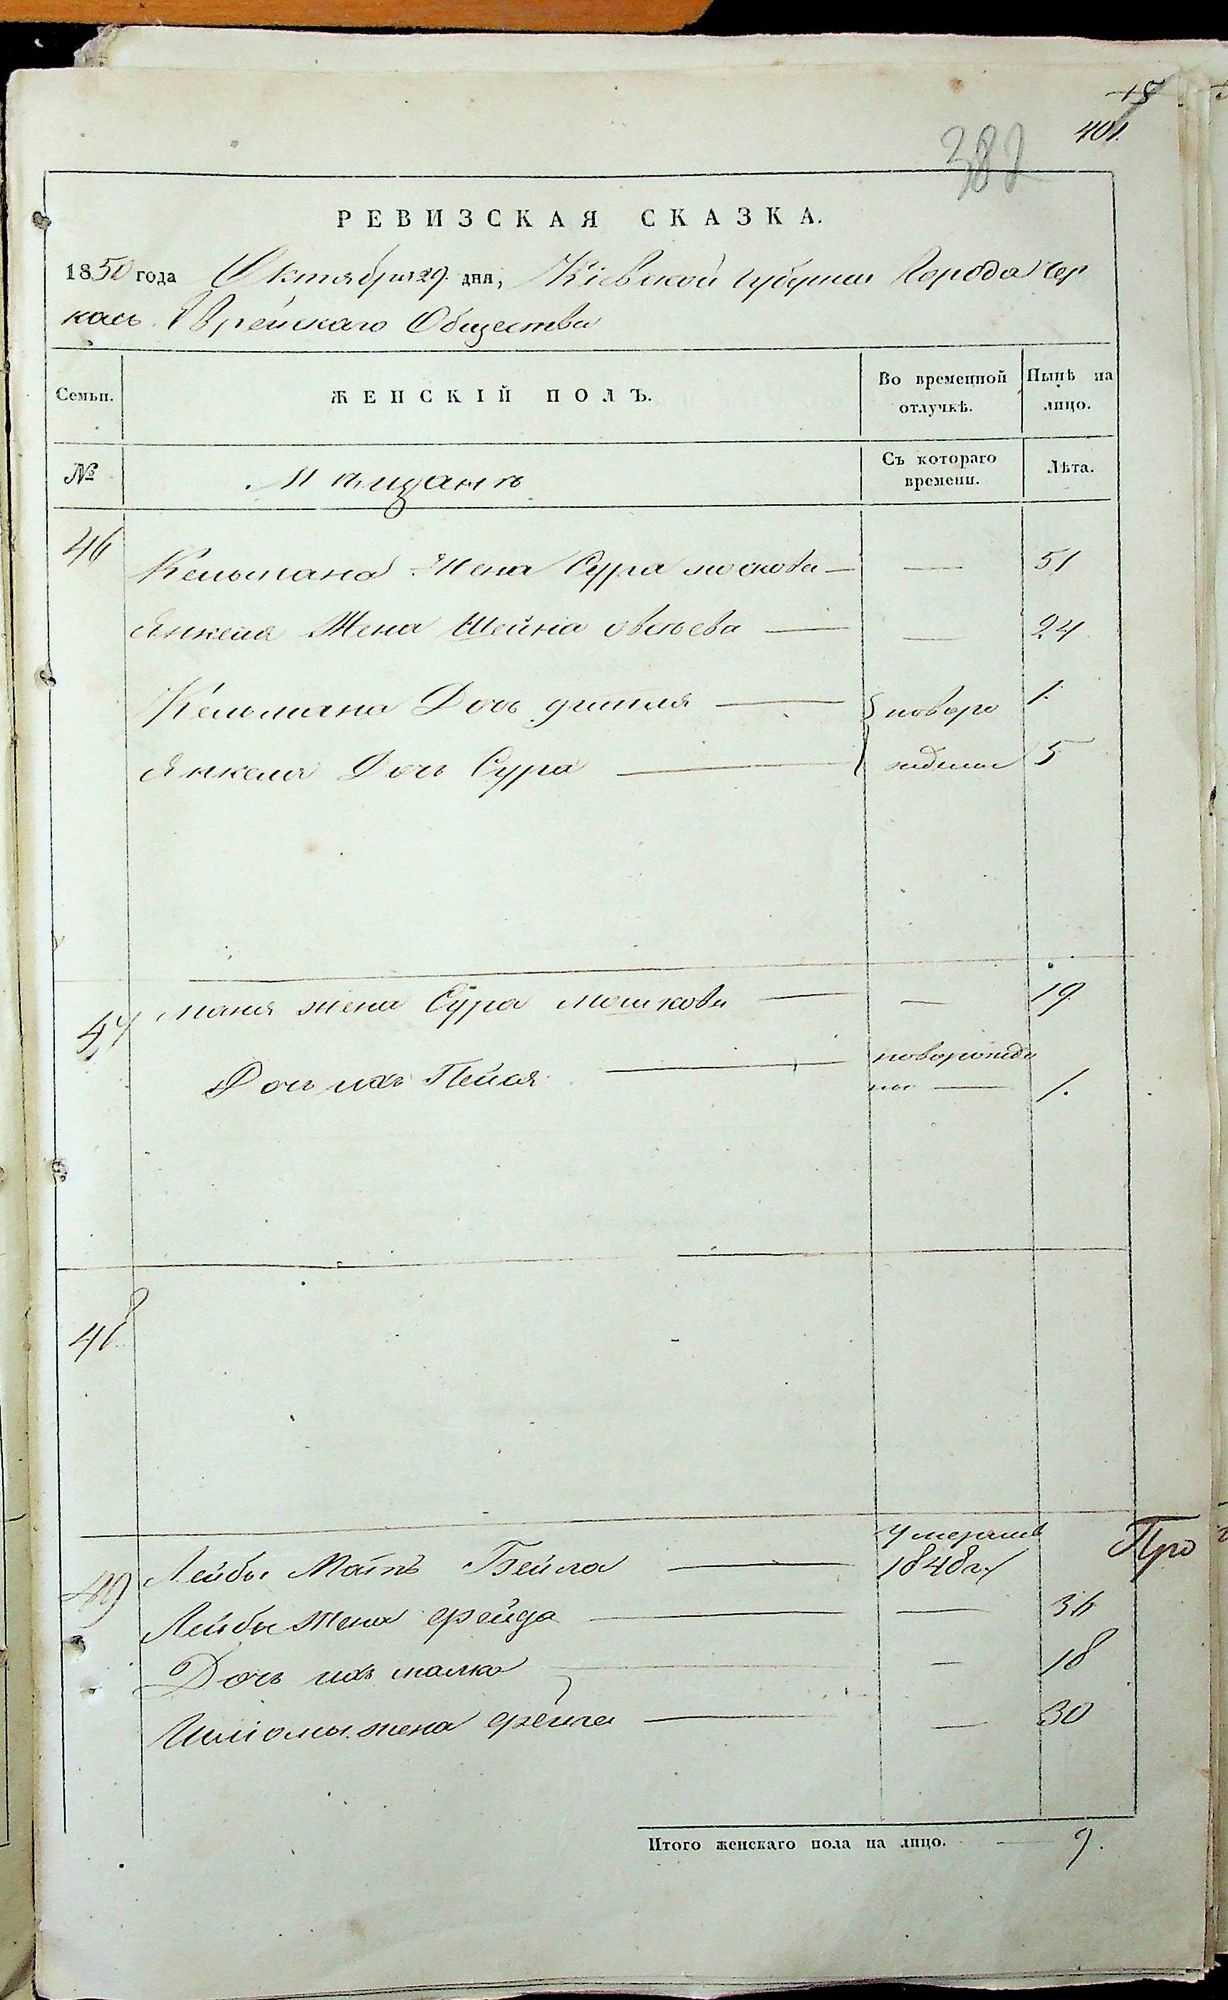 15
401.
382
РЕВИЗСКАЯ СКАЗКА.
1850 года Октября 29. дня, Кіевской губернии Города Чер
кас Еврейскаго Общества
Семьи. ЖЕНСКІЙ ПОЛЪ. Во временной отлучкѣ. Нынѣ на лицо.
№ Мѣщанъ Съ котораго времени. Лѣта.
46 Кельмана Жена Сура москова — — 51
Янкеля Жена Шейна овсіева — — 24
Кельмана Дочь — новоро 1.
Янкеля Дочь Сура — 5
47 жена Сура мошкова — — 19.
Дочь ихъ Пейся — новорожде
ны — 1.
48
49 Лейбы Мать Бейла — умерша
1848 г.
Лейбы Жена фрейда — — 36
Дочь ихъ малка — — 18
Шліомы жена фейга — — 30
Про
Итого женскаго пола на лицо. — 9.